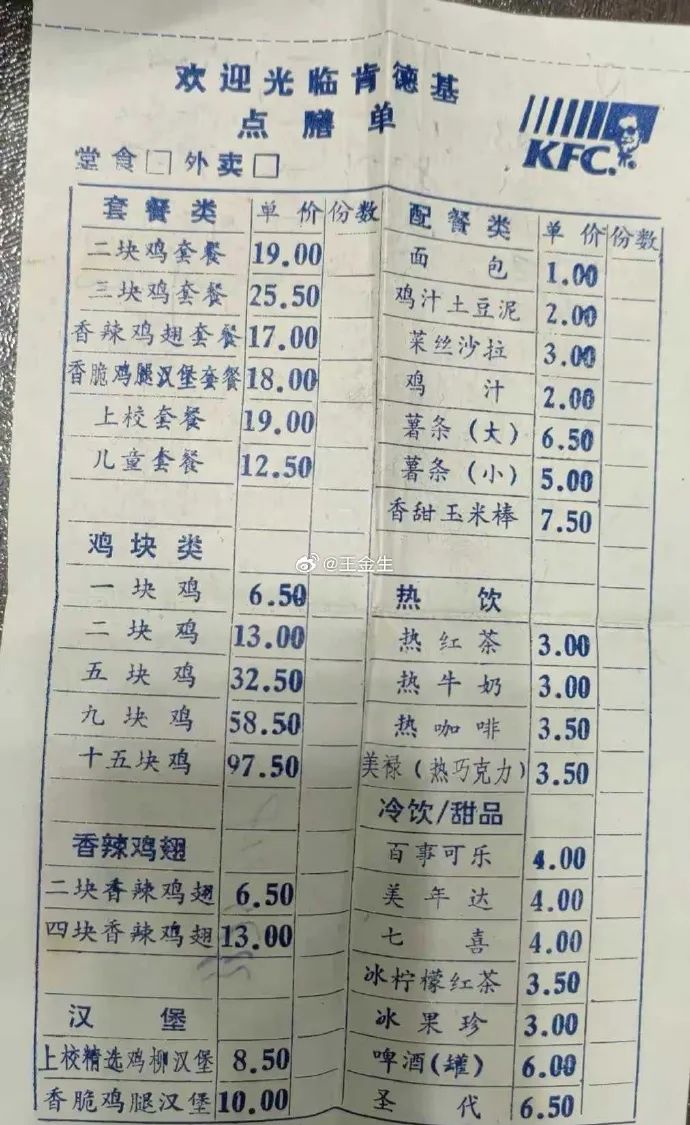 欢迎光临肯德基
点膳单
KFC.
堂食□外卖□
套餐类 单价 份数
二块鸡套餐 19.00
三块鸡套餐 25.50
香辣鸡翅套餐 17.00
香脆鸡腿汉堡套餐 18.00
上校套餐 19.00
儿童套餐 12.50
鸡块类
一块鸡 6.50
二块鸡 13.00
五块鸡 32.50
九块鸡 58.50
十五块鸡 97.50
香辣鸡翅
二块香辣鸡翅 6.50
四块香辣鸡翅 13.00
汉堡
上校精选鸡柳汉堡 8.50
香脆鸡腿汉堡 10.00
配餐类 单价 份数
面包 1.00
鸡汁土豆泥 2.00
菜丝沙拉 3.00
鸡汁 2.00
薯条(大) 6.50
薯条(小) 5.00
香甜玉米棒 7.50
热饮
热红茶 3.00
热牛奶 3.00
热咖啡 3.50
美禄(热巧克力) 3.50
冷饮/甜品
百事可乐 4.00
美年达 4.00
七喜 4.00
冰柠檬红茶 3.50
冰果珍 3.00
啤酒(罐) 6.00
圣代 6.50
@王金生